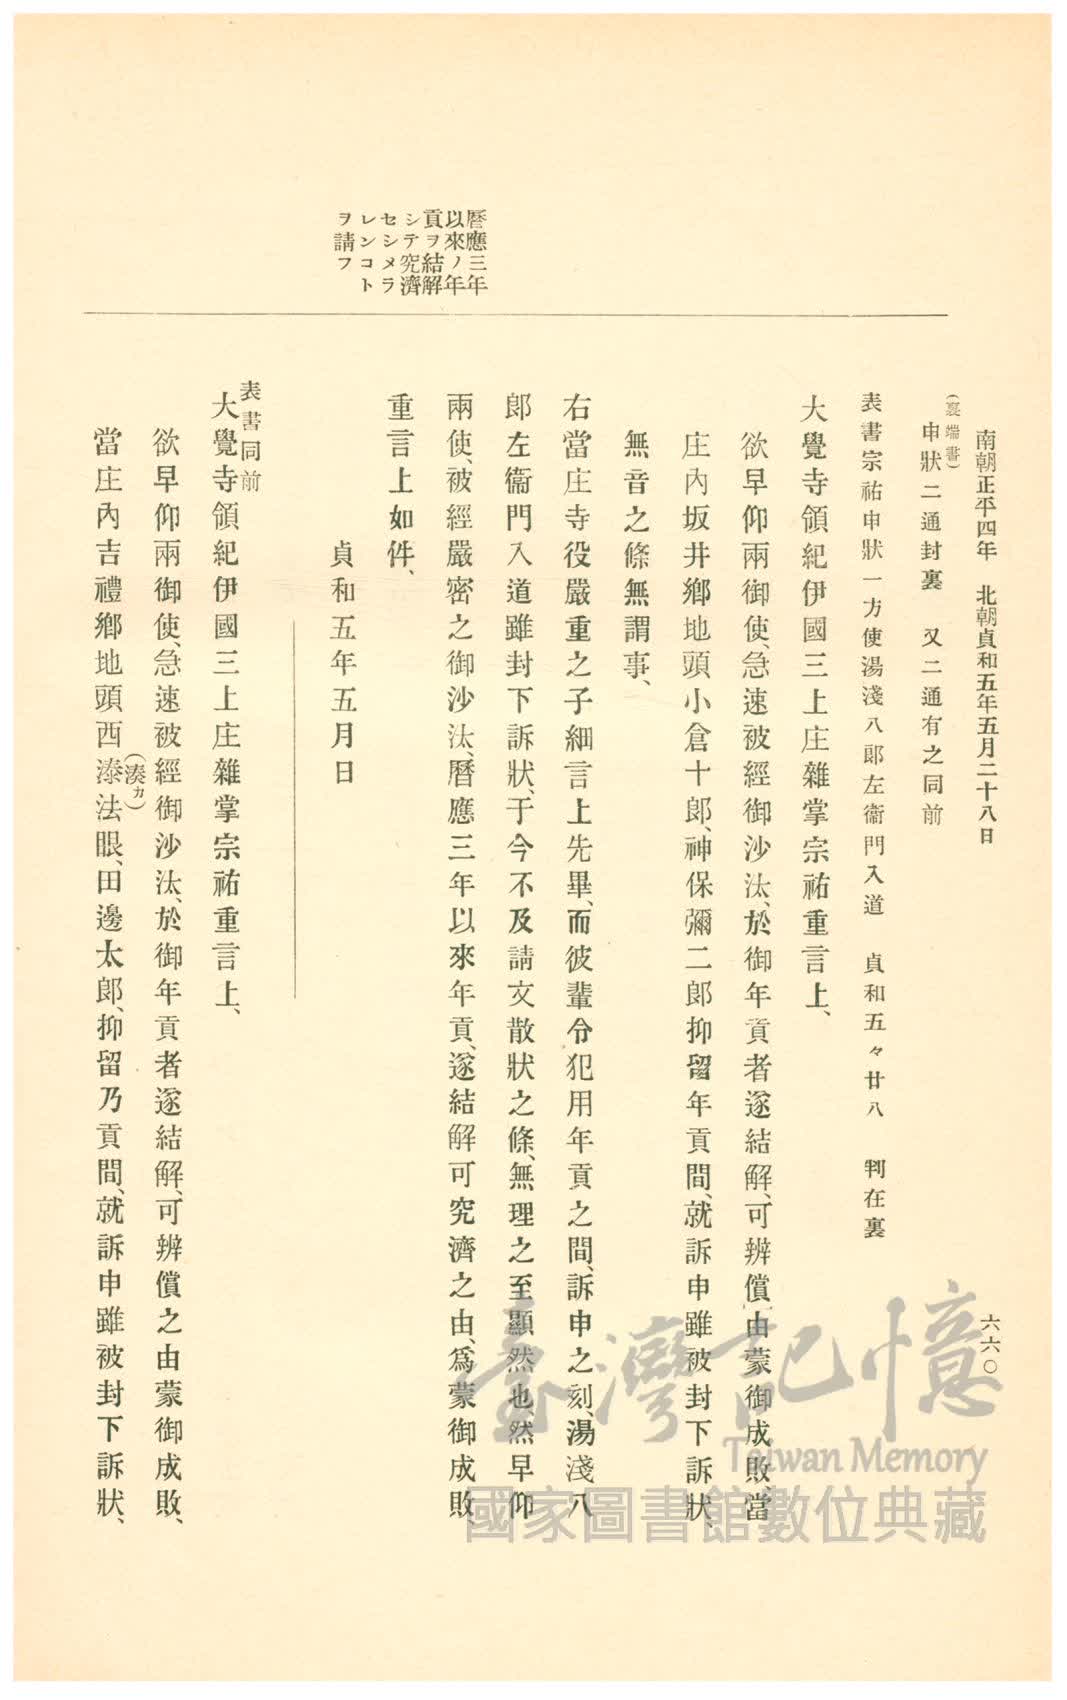 南朝正平四年　北朝貞和五年五月二十八日
六六〇
(裏端書)
申狀二通封裏　又二通有之同前
表書宗祐申狀一方使湯淺八郞左衞門入道　貞和五々廿八　判在裏
大覺寺領紀伊國三上庄雜掌宗祐重言上、
欲早仰兩御使、急速被經御沙汰、於御年貢者遂結解、可辨償由蒙御成敗、當
庄內坂井鄕地頭小倉十郞、神保彌二郞抑留年貢間、就訴申雖被封下訴狀、
無音之條無謂事、
右當庄寺役嚴重之子細言上先畢、而彼輩令犯用年貢之間、訴申之刻、湯淺八
郞左衞門入道雖封下訴狀、于今不及請文散狀之條、無理之至顯然也、然早仰
兩使、被經嚴密之御沙汰、曆應三年以來年貢、遂結解可究濟之由、爲蒙御成敗、
重言上如件、
曆應三年
以來ノ年
貢ヲ結解
シテ究濟
セシメラ
レンコト
ヲ請フ
貞和五年五月日
表書同前
大覺寺領紀伊國三上庄雜掌宗祐重言上、
欲早仰兩御使、急速被經御沙汰、於御年貢者遂結解、可辨償之由蒙御成敗、
(湊カ)
當庄內吉禮鄕地頭西漆法眼、田邊太郞、抑留乃貢間、就訴申雖被封下訴狀、
臺灣記憶
Taiwan Memory
國家圖書館數位典藏